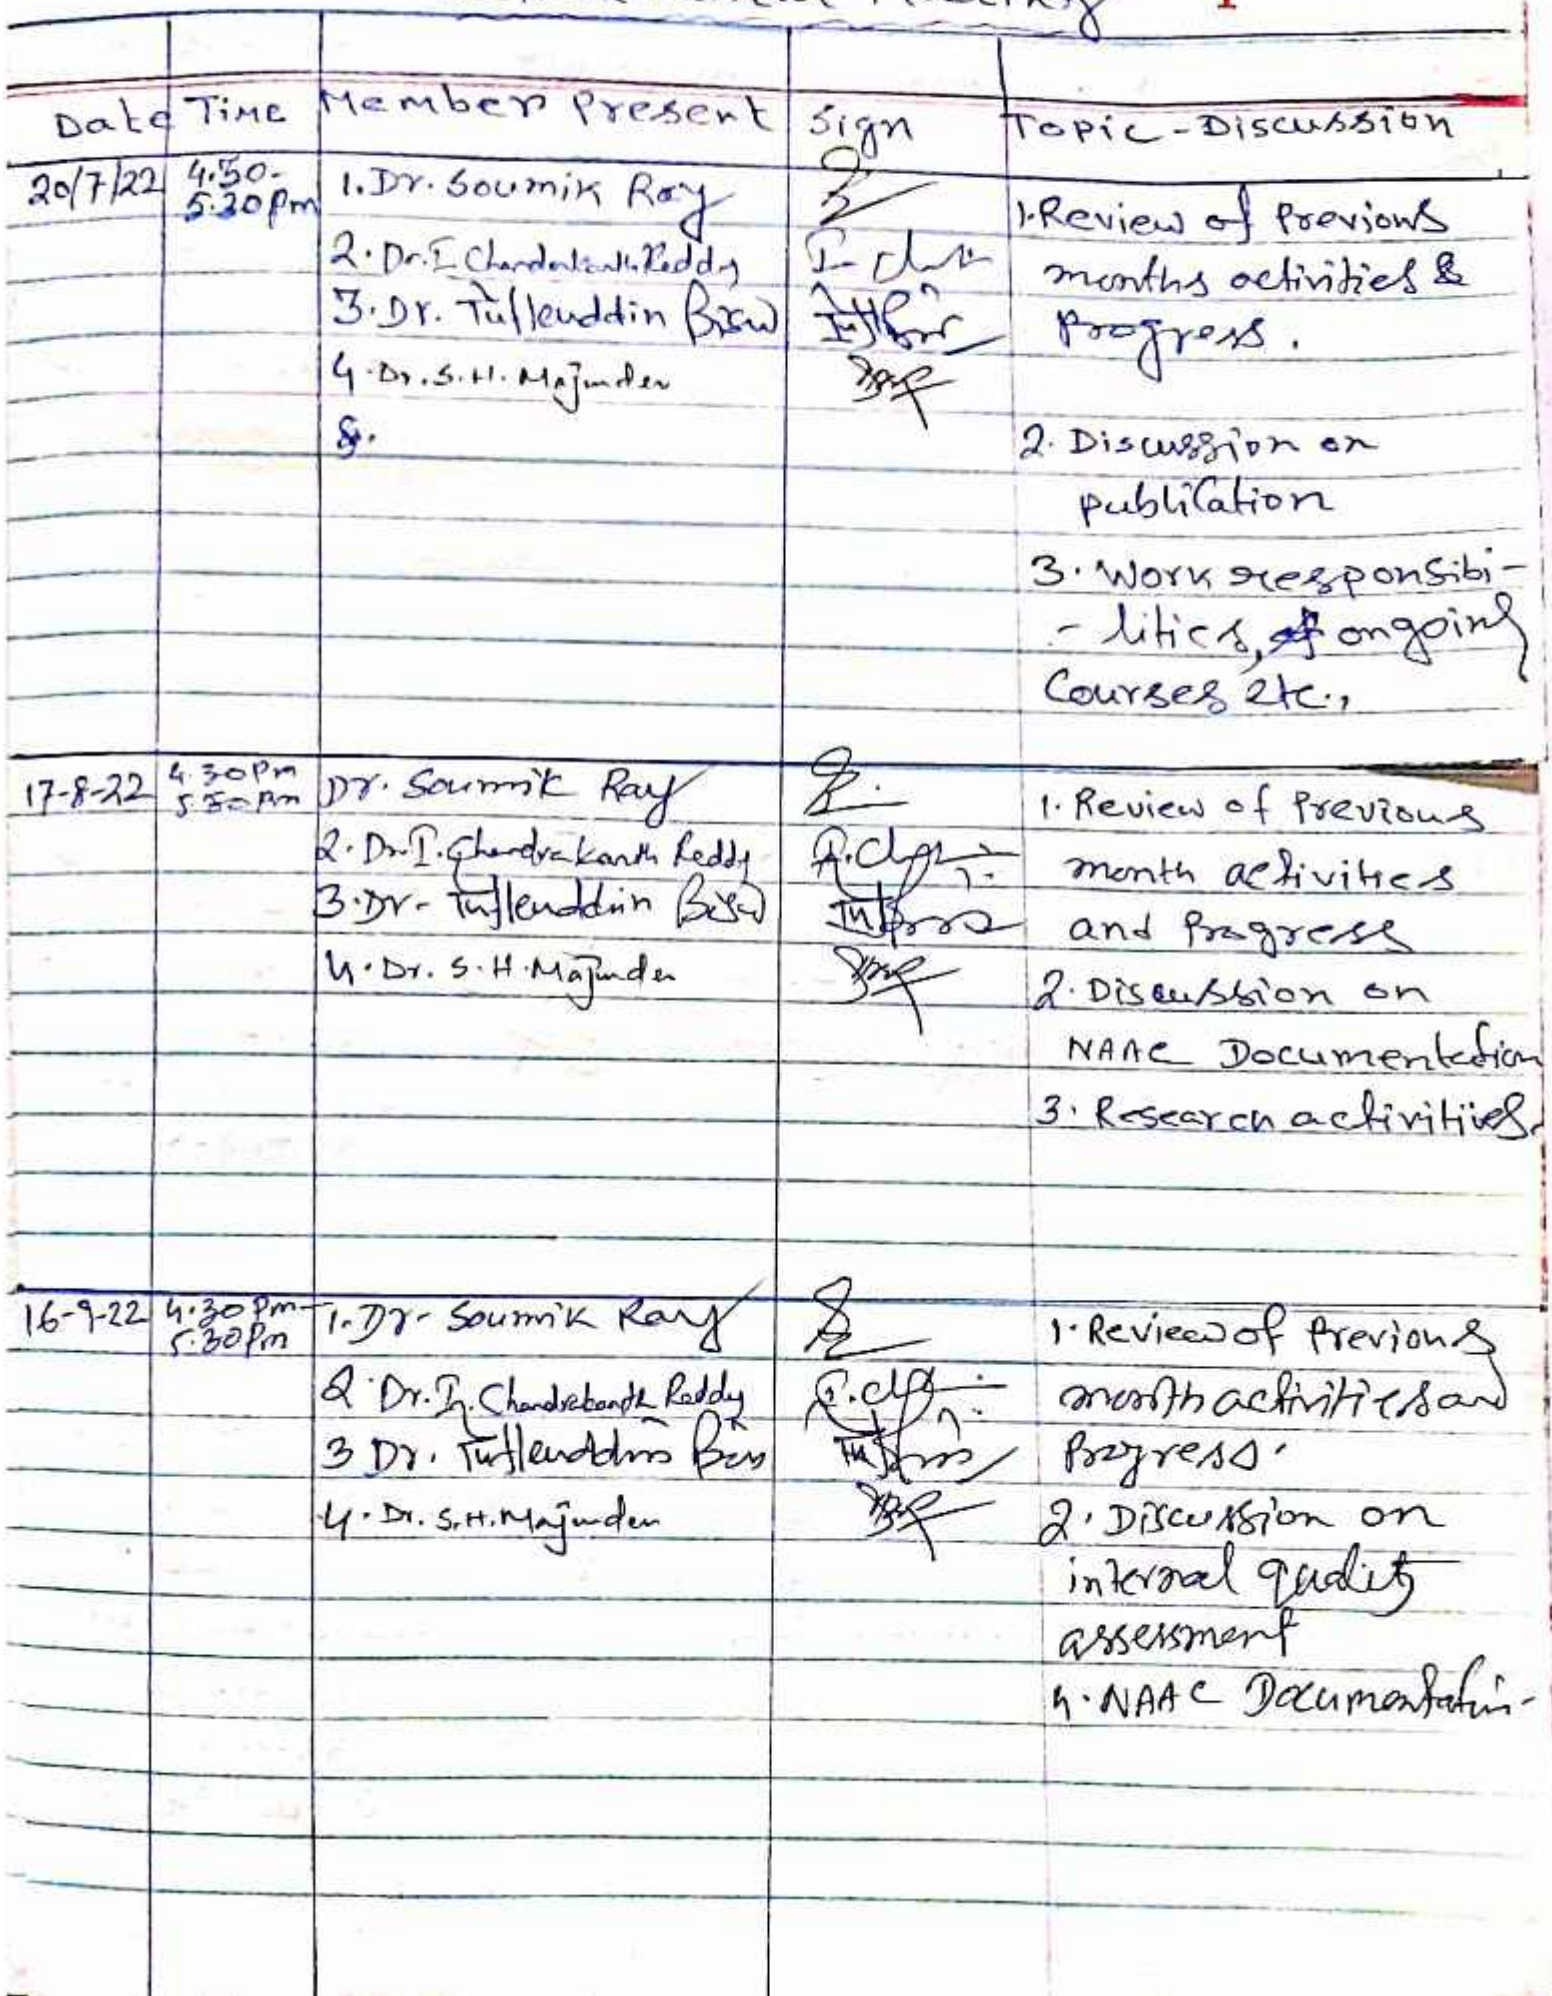 Meeting
Date Time Member Present Sign Topic-Discussion
20/7/22 4.30-
5.30 pm
1. Dr. Soumik Ray
2. Dr. I. Chandrakanth Reddy
3. Dr. Tufleuddin Biswas
4. Dr. S. H. Majumder
5.
1. Review of Previous
months activities &
Progress.
2. Discussion on
publication
3. Work responsibi-
- lities, ongoing
Courses etc.,
17-8-22 4.30 Pm
5.30 Pm
Dr. Soumik Ray
2. Dr. I. Chandrakanth Reddy
3. Dr- Tufleuddin Biswas
4. Dr. S. H. Majumder
1. Review of Previous
month activities
and Progress
2. Discussion on
NAAC Documentation
3. Research activitiies.
16-9-22 4.30 Pm-
5.30 Pm
1. Dr- Soumik Ray
2. Dr. I. Chandrakanth Reddy
3 Dr. Tufleuddin Biswas
4. Dr. S. H. Majumder
1. Review of Previous
month activities and
Progress.
2. Discussion on
internal quality
assessment
4. NAAC Documentation-